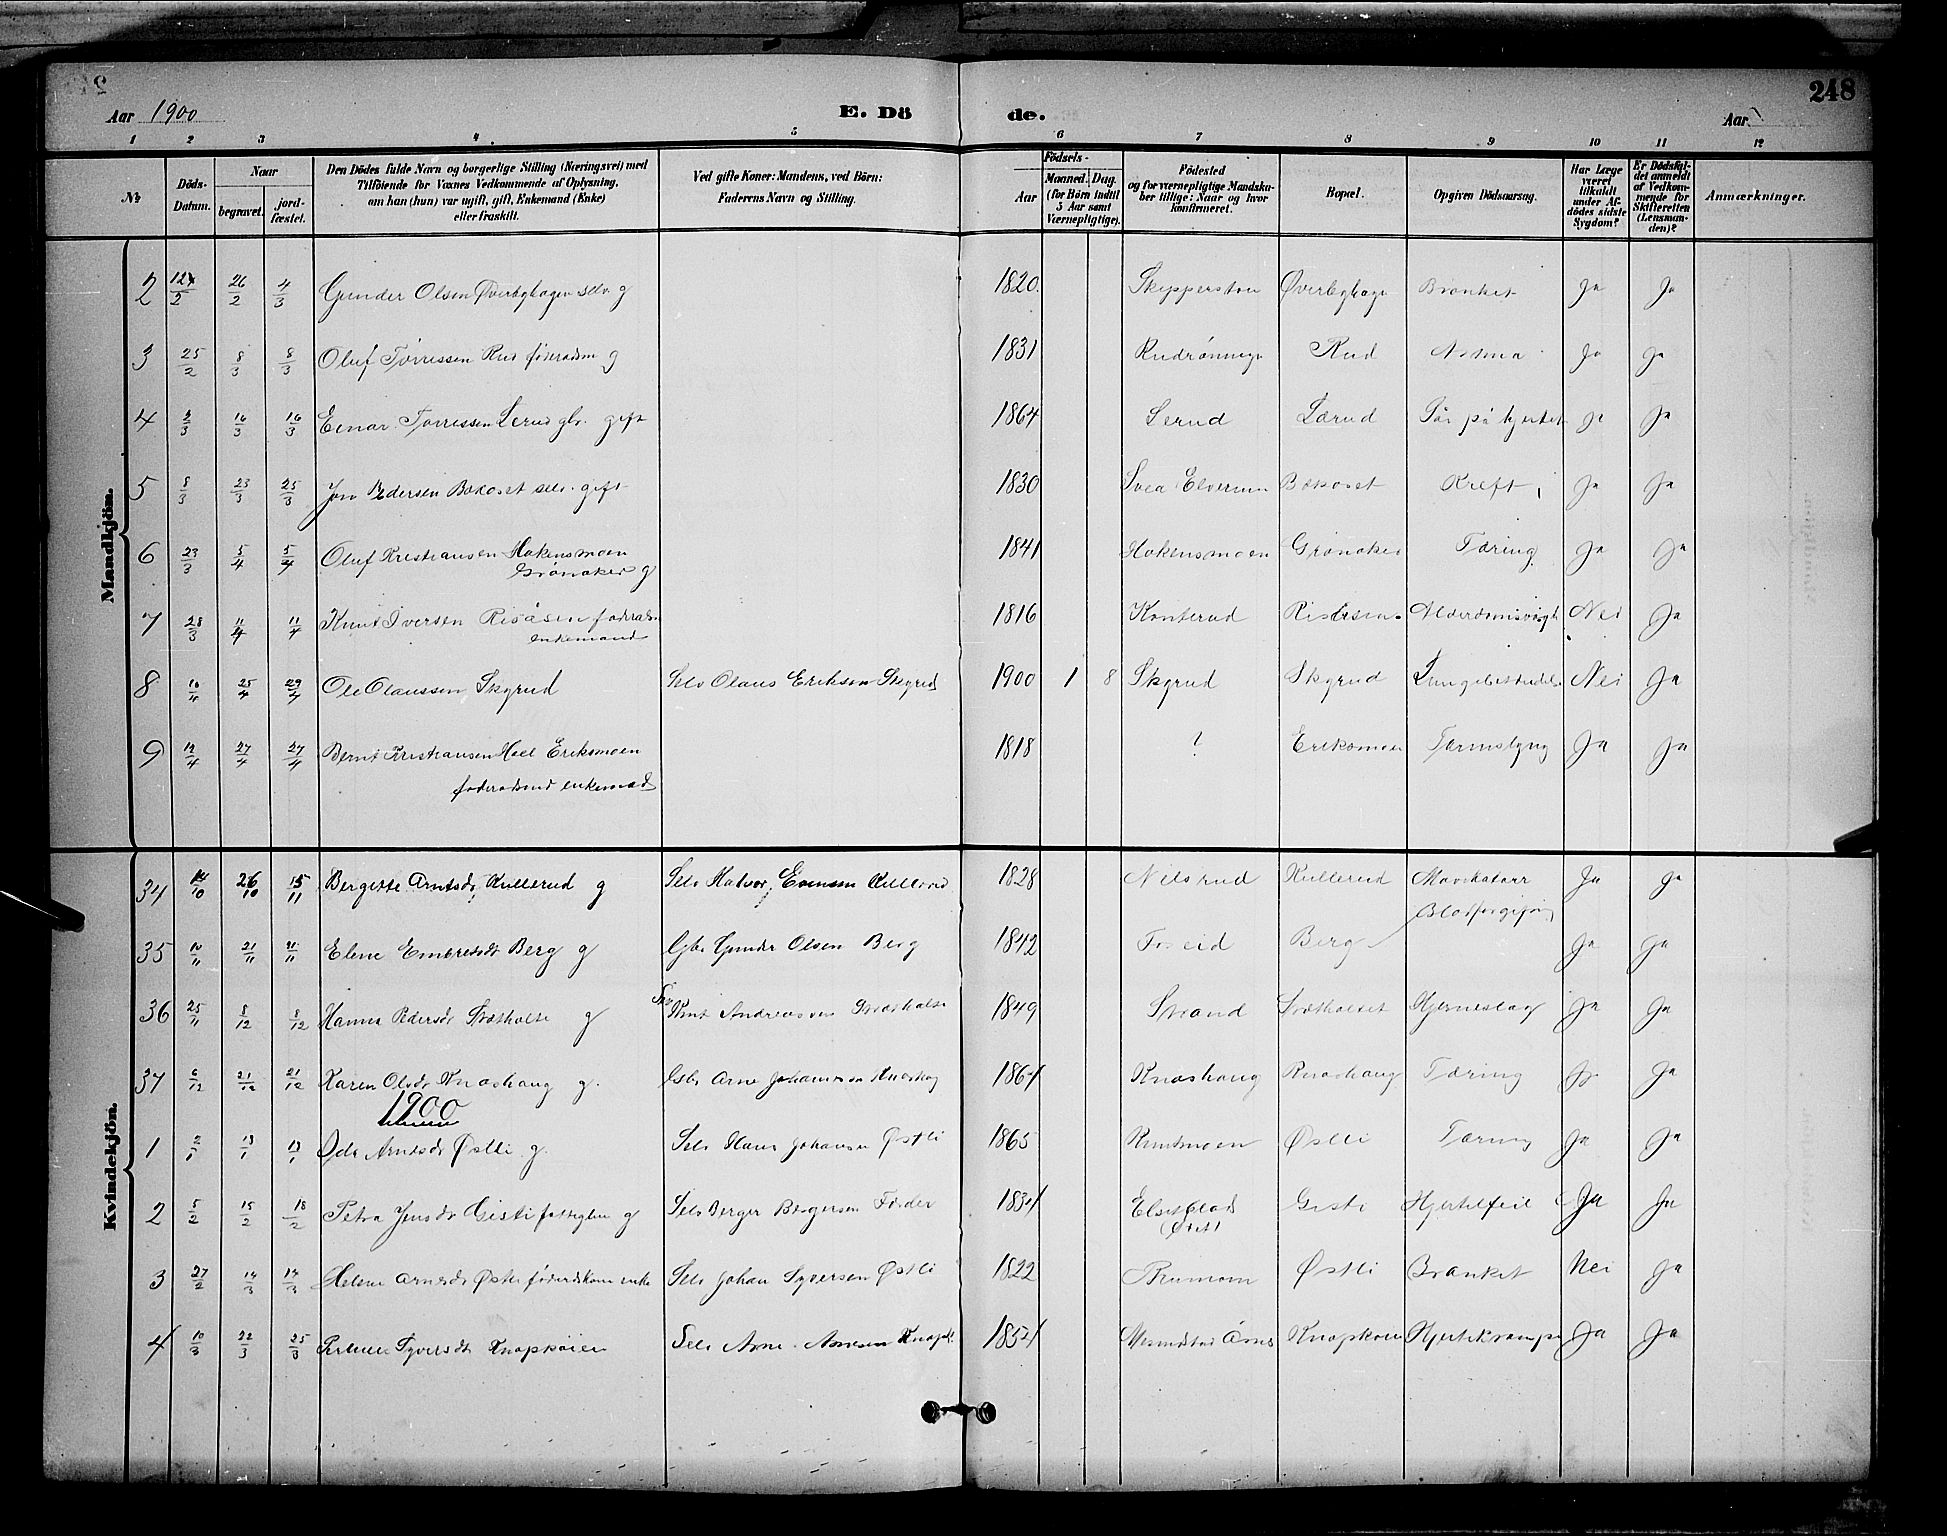 248
Aar 1900
E. Dö
de.
Aar
1 2 3 4 5 6 7 8 9 10 11 12
№
Döds-Datum.
Naar
begravet.
jord-fæstet.
Den Dödes fulde Navn og borgerlige Stilling (Næringsvei) med
Tilföiende for Voxnes Vedkommende af Oplysning,
om han (hun) var ugift, gift, Enkemand (Enke)
eller fraskilt.
Ved gifte Koner: Mandens, ved Börn:
Faderens Navn og Stilling.
Födsels-
Aar
Maaned. Dag.
(for Börn indtil
5 Aar samt
Værnepligtige).
Födested
og for værnepligtige Mandska-
ber tillige: Naar og hvor
konfirmeret.
Bopæl.
Opgiven Dödsaarsag.
Har Læge
været
tilkaldt
under Af-
dödes sidste
Sygdom?
Er Dödsfal-
det anmeldt
af Vedkom-
mende for
Skifteretten
(Lensman-
den)?
Anmærkninger.
Mandkjön.
2 26/2 4/3 Gunder Olsen Øverbyhagen selv. g 1820. Øverbyhage Bronkit Ja Ja
3 25/2 8/3 8/3 Oluf Torressen Rud føderaadsm g 1831 Rud Ja Ja
4 3/3 16/3 16/3 Einar Torressen Lerud gbr. gift 1864 Lerud Lerud Sår på hjertet Ja Ja
5 8/3 23/3 25/3 Jon Pedersen Bekoset selv. gift 1830 Svea Elverum Bekoset Kreft Ja Ja
6 23/3 5/4 5/4 Oluf Kristiansen Hakensmoen
Grønaker g 1841 Hakensmoen Grønaker Tæring Ja Ja
7 28/3 11/4 11/4 Knut Iversen Risåsen føderaadsm
enkemand 1816 Konterud Risåsen Alderdomssvagh Nei Ja
8 10/4 25/4 29/4 Ole Olaussen Skyrud Selv Olaus Eriksen Skyrud 1900 1 8 Skyrud Skyrud Lungebetændelse Nei Ja
9 12/4 27/4 27/4 Bernt Kristiansen Hoel Eriksmoen
føderaadsmd enkemad 1818 ? Eriksmoen Tarmslyng Ja Ja
Kvindekjön.
34 14/10 26/10 15/11 Bergitte Arntsdr Kullerud g Selv Halvor Evensen Kullerud 1828 Nilsrud Kullerud Mavekatarr Ja Ja
35 10/11 21/11 21/11 Elene Embretsdr Berg g Gbr Gunder Olsen Berg 1842 Foseid Berg Blodforgiftning Ja Ja
36 25/11 8/12 8/12 Hanna Pedersdr g Knut Andreassen 1849 Strand Hjerneslag Ja Ja
37 6/12 21/12 21/12 Karen Olsdr Knashaug g. Gbr Arne Johannesen Knashaug 1864 Knashaug Knashaug Tæring Ja Ja
1900
1 2/1 13/1 13/1 Oda Arntsdr Østli g. Selv Hans Johansen Østli 1865 Knutsmoen Østli Tæring Ja Ja
2 5/2 15/2 18/2 Petra Jensdr Gisti fattiglem g Selv Berger Bergersen 1834 Gisti Hjertefeil Ja Ja
3 27/2 14/3 14/3 Helene Arnesdr Østli føderådskone enke Selv Johan Syversen Østli 1822 Østli Bronkit Nei Ja
4 10/3 22/3 25/3 Syversdr Knapkøien Selv Arne Arnesen Knapk. 1854 Årnes Knapkøien Hjertekrampe Ja Ja